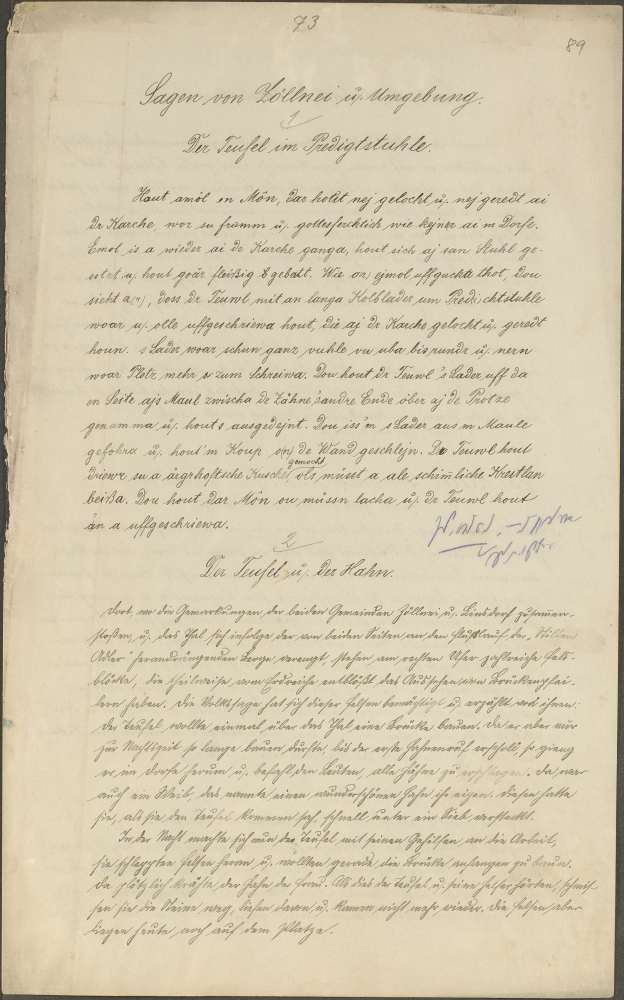 73
89
Sagen von Zöllnei u. Umgebung.
1
Der Teufel im Predigtstuhle.
Haut amöl en Mön, dar hotit nej gelocht u. nej geredt ai
dr Karche, wor su fromm u. gottesferchtich wie kejner ai m Dorfe.
Emol is a wieder ai de Karche ganga, hout sich aj san Stuhl ge-
setzt u. hout goär fleißig gebatt. Wie on ejmol uffguckte thot, dou
sieht a, doss dr Teuwl mit an langa Kolblader um Predichtstuhle
woar u. olle uffgeschriewa hout, die aj dr Karche gelocht u. geredt
houn. s Lader woar schun ganz vuhle vu uba bis runde u. nern
woar Plotz mehr s zum Schreiwa. Dou hout dr Teuwl 's Lader uff da
en Seite ajs Maul zwischa de Zähne 'sandre Ende öber aj de Protze
genumma u. hout's ausgedejnt. Dou iss'm s Lader aus m Maule
gefohra u. hout'm Koup de Wand geschlejn. Dr Teuwl hout
driewr su a ärgrhoftsche Kusche gemocht, ols müsst a ale schimliche Krestlan
beißa. Dou hout dar Mön ou müssn lacha u. dr Teuwl hout
än a uffgeschriewa.
2
Der Teufel u. der Hahn.
Dort, wo die Gemarkungen der beiden Gemeinden Zöllnei u. Linsdorf zusammen-
stoßen, u. das Thal sich infolge der von beiden Seiten an den Flußlauf der „Stillen
Adler" herandrängenden Berge verengt, stehen am rechten Ufer zahlreiche Fels-
blöcke, die theilweise vom Erdreiche entblößt das Aussehen von Brückenpfei-
lern haben. Die Volkssage hat sich dieser Felsen bemächtigt u. erzählt von ihnen:
Der Teufel wollte einmal über das Thal eine Brücke bauen. Da er aber nur
zur Nachtszeit so lange bauen durfte, bis der erste Hahnenruf erscholl, so gieng
er im Dorfe herum u. befahl den Leuten, alle Hähne zu erschlagen. Da war
auch ein Weib, das nannte einen wunderschönen Hahn ihr eigen. Diesen hatte
sie, als sie den Teufel kommen sah, schnell unter ein Sieb versteckt.
In der Nacht machte sich nun der Teufel mit seinen Gehilfen an die Arbeit,
sie schleppten Felsen heran u. wollten gerade die Brücke anfangen zu bauen.
Da plötzlich krähte der Hahn der Frau. Als dies der Teufel u. seine Helfer hörten, schmis-
sen sie die Steine weg, liefen davon u. kamen nicht mehr wieder. Die Felsen aber
liegen heute noch auf dem Platze.